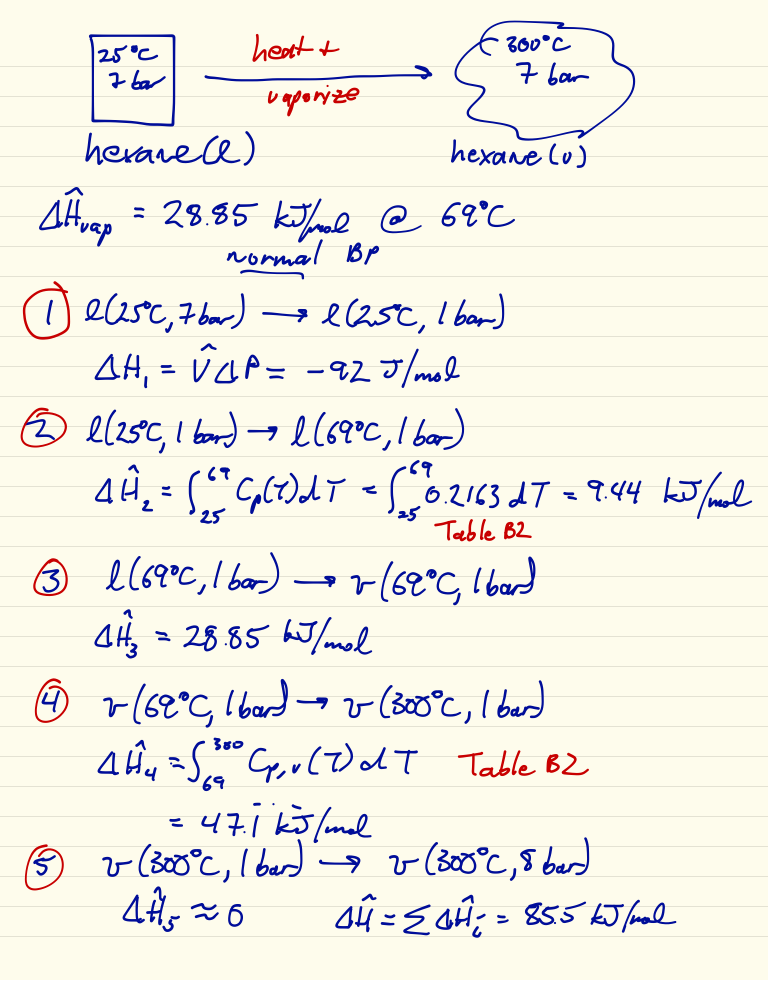 25°C
7 bar
heat +
vaporize
300°C
7 bar
hexane(l)
hexane(v)
ΔĤvap = 28.85 kJ/mol @ 69°C
normal BP
① l(25°C, 7bar) → l(25°C, 1 bar)
ΔH₁ = V̂ΔP = -92 J/mol
② l(25°C, 1 bar) → l(69°C, 1 bar)
ΔĤ₂ = ∫₂₅⁶⁹ Cp(T)dT = ∫₂₅⁶⁹ 0.2163 dT = 9.44 kJ/mol
Table B2
③ l(69°C, 1 bar) → v(69°C, 1 bar)
ΔĤ₃ = 28.85 kJ/mol
④ v(69°C, 1 bar) → v(300°C, 1 bar)
ΔĤ₄ = ∫₆₉³⁰⁰ Cp,v(T)dT Table B2
= 47.1 kJ/mol
⑤ v(300°C, 1 bar) → v(300°C, 8 bar)
ΔĤ₅ ≈ 0 ΔĤ = ΣΔĤi = 85.5 kJ/mol